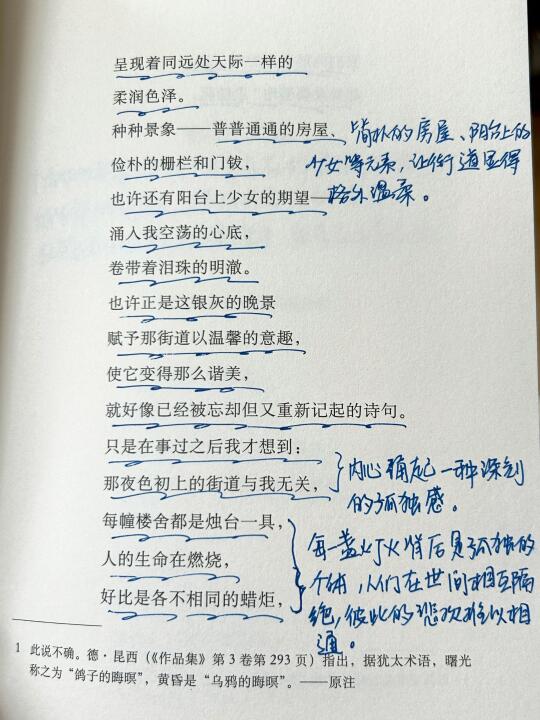 呈现着同远处天际一样的
柔润色泽。
种种景象——普普通通的房屋、
简朴的房屋、阳台上的
俭朴的栅栏和门钹，
少女等元素，让街道显得
也许还有阳台上少女的期望——
格外温柔。
涌入我空荡的心底，
卷带着泪珠的明澈。
也许正是这银灰的晚景
赋予那街道以温馨的意趣，
使它变得那么谐美，
就好像已经被忘却但又重新记起的诗句。
只是在事过之后我才想到：
那夜色初上的街道与我无关，
内心涌起一种深刻
的孤独感。
每幢楼舍都是烛台一具，
人的生命在燃烧，
好比是各不相同的蜡炬，
每一盏灯火背后是孤独的
个体，人们在世间相互隔
绝，彼此的悲欢难以相
通。
1 此说不确。德·昆西（《作品集》第3卷第293页）指出，据犹太术语，曙光
称之为“鸽子的晦暝”，黄昏是“乌鸦的晦暝”。——原注